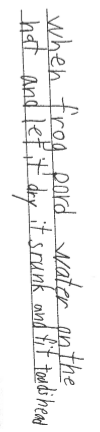 when frog pord water on the
hat and let it dry it srunk and fit toads head